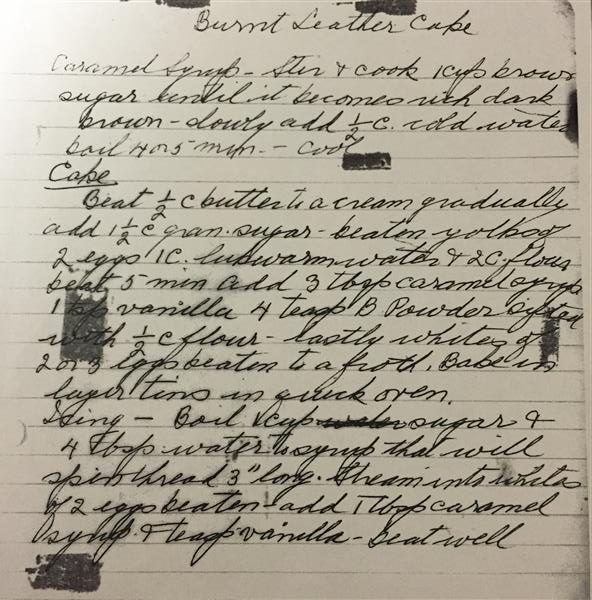 Burnt Leather Cake
Caramel Syrup - Stir & cook 1 cup brown
sugar until it becomes rich dark
brown - slowly add ½ c. cold water
boil 4 or 5 min. - Cool
Cake
Beat ½ c butter to a cream gradually
add 1½ c gran. sugar - beaten yolks of
2 eggs 1 C. lukewarm water & 2 C. flour
beat 5 min add 3 tbsp caramel syrup
1 tsp vanilla 4 teasp B Powder sifted
with ½ c flour - lastly whites of
2 or 3 eggs beaten to a froth. Bake in
layer tins in quick oven.
Icing - Boil 1 cup sugar &
4 tbsp water to syrup that will
spin thread 3" long. Stream into whites
of 2 eggs beaten - add 1 tbsp caramel
syrup & teasp vanilla - beat well